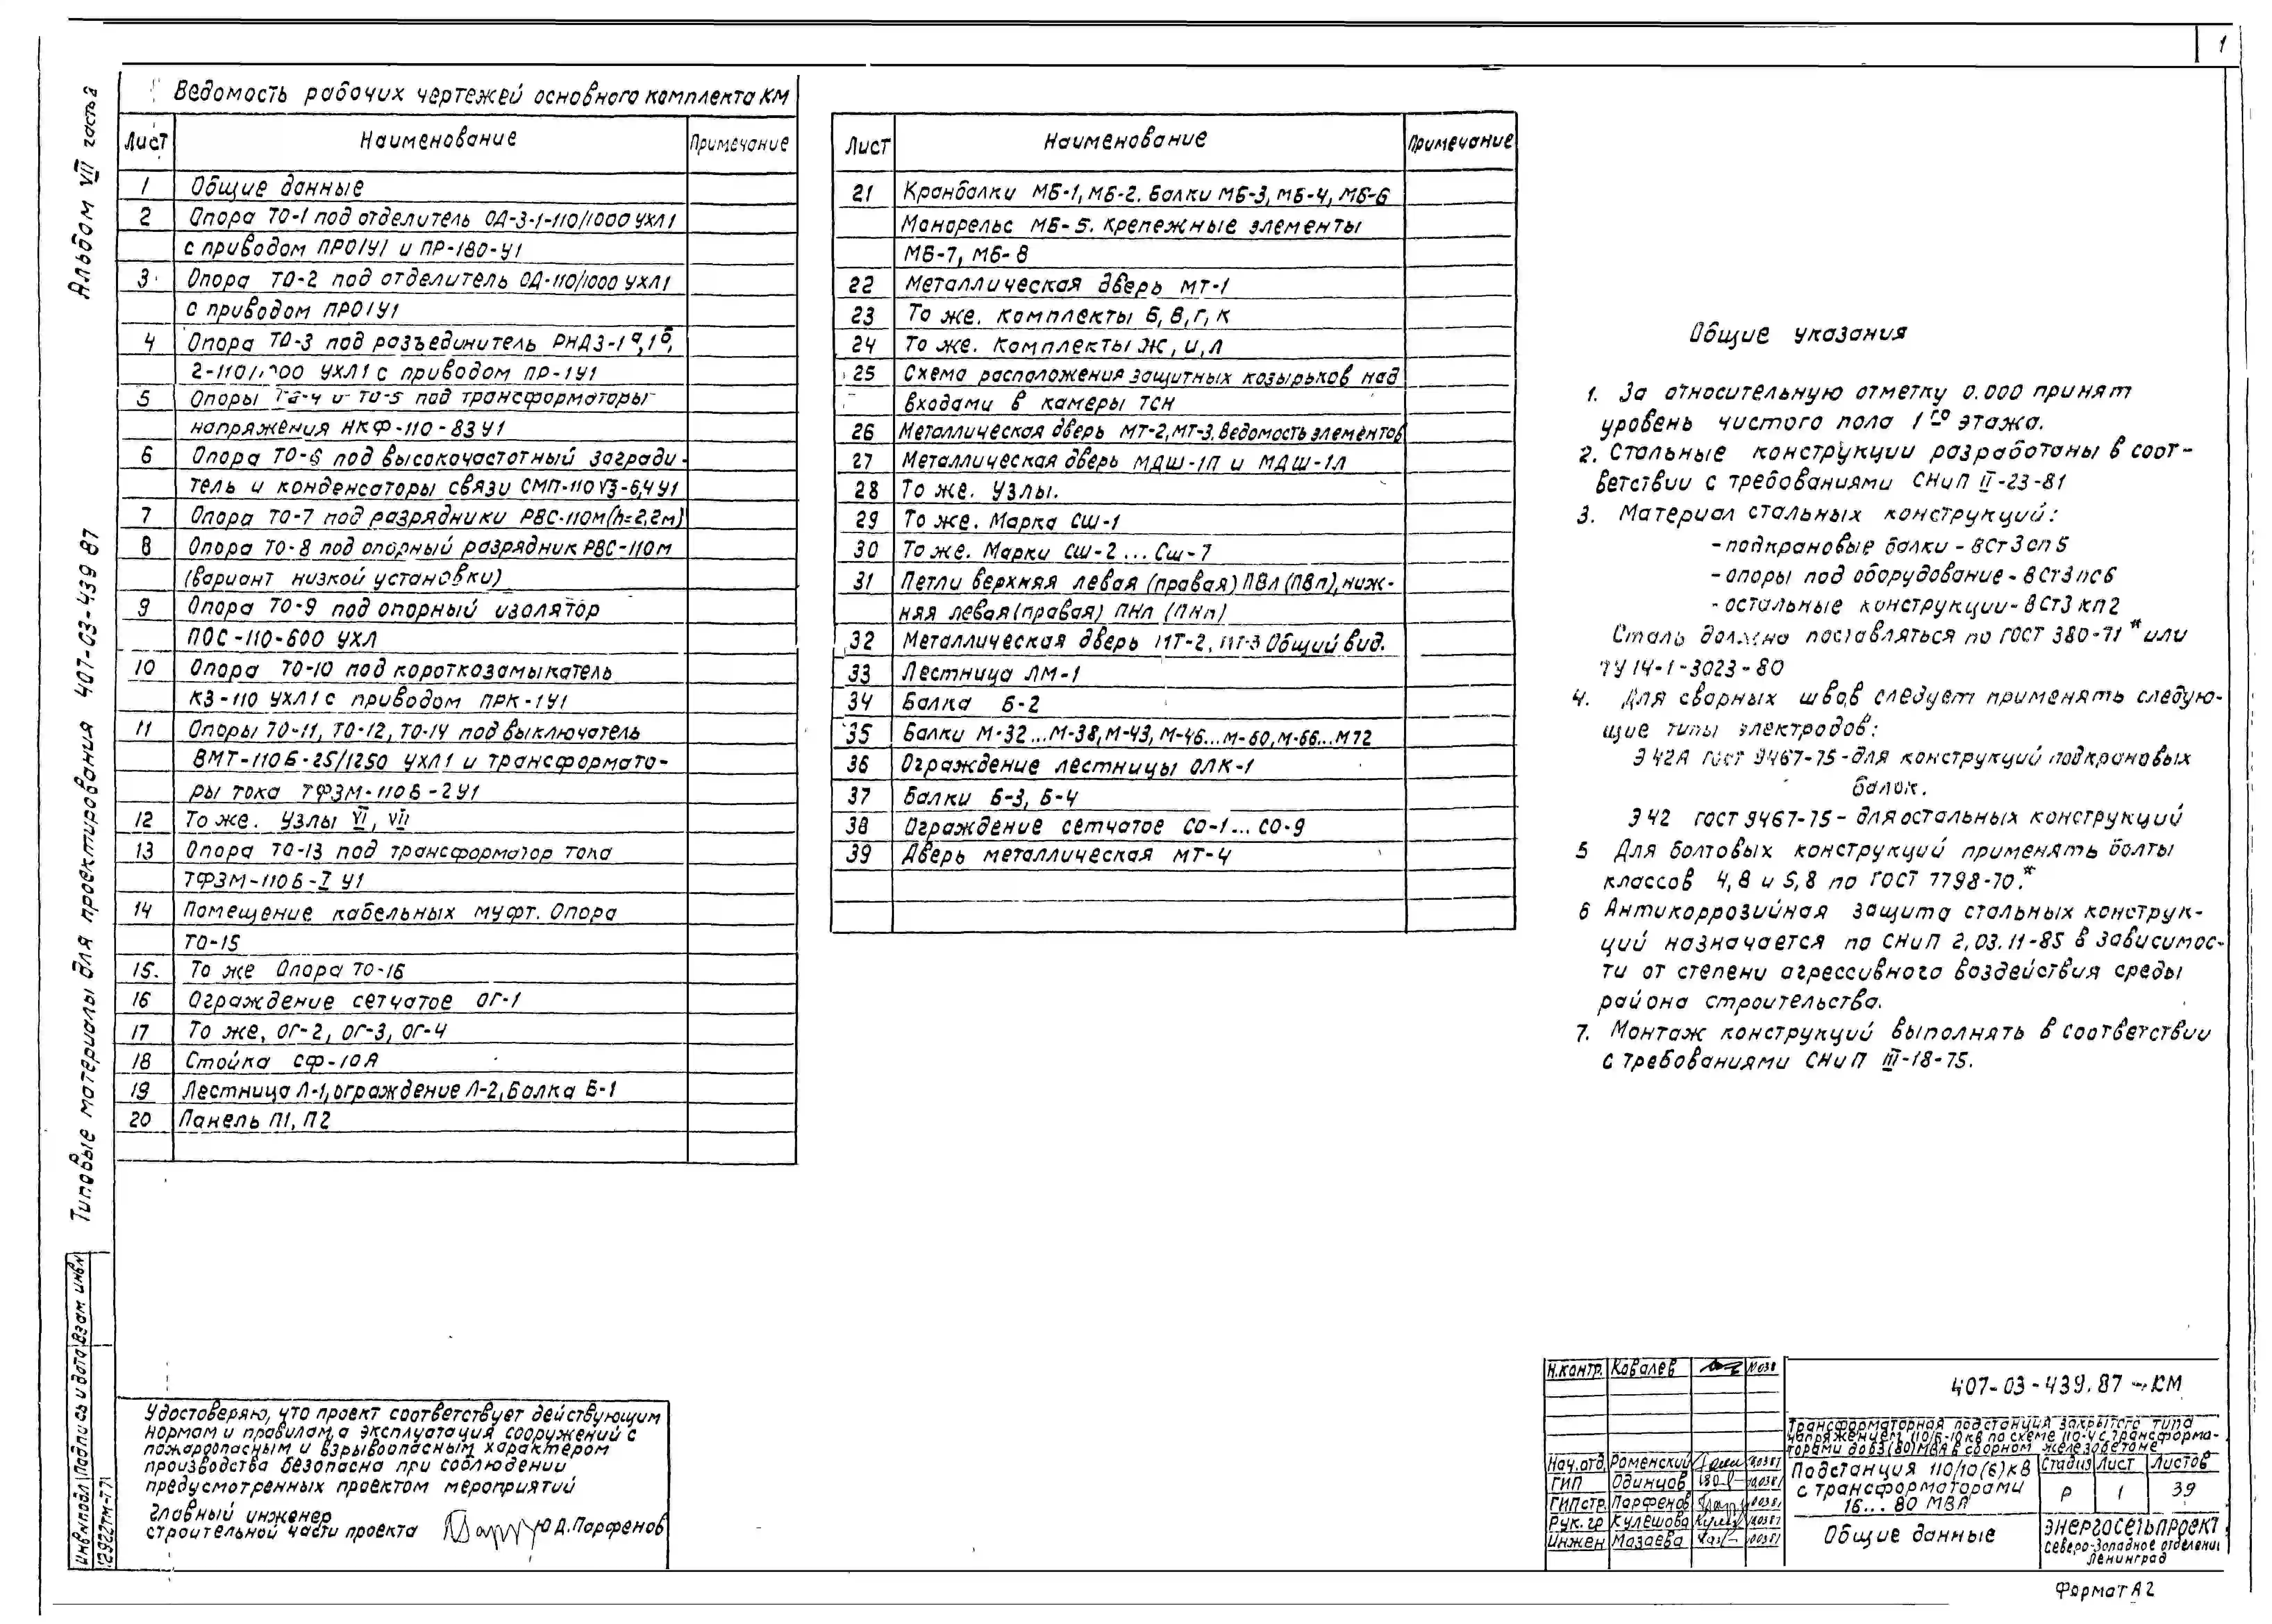 1
Альбом VII часть 2
Типовые материалы для проектирования 407-03-439 87
Ведомость рабочих чертежей основного комплекта КМ
Лист Наименование Примечание
1 Общие данные
2 Опора ТО-1 под отделитель ОД-3-1-110/1000 УХЛ1
с приводом ПРО1У1 и ПР-180-У1
3 Опора ТО-2 под отделитель ОД-110/1000 УХЛ1
с приводом ПРО1У1
4 Опора ТО-3 под разъединитель РНДЗ-1а,1б,
2-110/1000 УХЛ1 с приводом ПР-1У1
5 Опоры ТО-4 и ТО-5 под трансформаторы
напряжения НКФ-110-83У1
6 Опора ТО-6 под высокочастотный загради-
тель и конденсаторы связи СМП-110√3-6,4У1
7 Опора ТО-7 под разрядники РВС-110м(h=2,2м)
8 Опора ТО-8 под опорный разрядник РВС-110м
(вариант низкой установки)
9 Опора ТО-9 под опорный изолятор
ПОС-110-600 УХЛ
10 Опора ТО-10 под короткозамыкатель
КЗ-110 УХЛ1 с приводом ПРК-1У1
11 Опоры ТО-11, ТО-12, ТО-14 под выключатель
ВМТ-110Б-25/1250 УХЛ1 и трансформато-
ры тока ТФЗМ-110Б-2У1
12 То же. Узлы VI, VII
13 Опора ТО-13 под трансформатор тока
ТФЗМ-110Б-I У1
14 Помещение кабельных муфт. Опора
ТО-15
15. То же Опора ТО-16
16 Ограждение сетчатое ОГ-1
17 То же, ОГ-2, ОГ-3, ОГ-4
18 Стойка СФ-10А
19 Лестница Л-1, ограждение Л-2, Балка Б-1
20 Панель П1, П2
Лист Наименование Примечание
21 Кранбалки МБ-1, МБ-2. Балки МБ-3, МБ-4, МБ-6
Монорельс МБ-5. Крепежные элементы
МБ-7, МБ-8
22 Металлическая дверь МТ-1
23 То же. Комплекты Б, В, Г, К
24 То же. Комплекты Ж, И, Л
25 Схема расположения защитных козырьков над
входами в камеры ТСН
26 Металлическая дверь МТ-2, МТ-3. Ведомость элементов
27 Металлическая дверь МДШ-1П и МДШ-1Л
28 То же. Узлы.
29 То же. Марка СШ-1
30 То же. Марки СШ-2...СШ-7
31 Петли верхняя левая (правая) ПВл (ПВп), ниж-
няя левая (правая) ПНл (ПНп)
32 Металлическая дверь МТ-2, МТ-3 Общий вид.
33 Лестница ЛМ-1
34 Балка Б-2
35 Балки М-32...М-38, М-43, М-46...М-60, М-66...М72
36 Ограждение лестницы ОЛК-1
37 Балки Б-3, Б-4
38 Ограждение сетчатое СО-1...СО-9
39 Дверь металлическая МТ-4
Общие указания
1. За относительную отметку 0.000 принят
уровень чистого пола 1го этажа.
2. Стальные конструкции разработаны в соот-
ветствии с требованиями СНиП II-23-81
3. Материал стальных конструкций:
- подкрановые балки - ВСт3сп5
- опоры под оборудование - ВСт3пс6
- остальные конструкции - ВСт3кп2
Сталь должна поставляться по ГОСТ 380-71* или
ТУ 14-1-3023-80
4. Для сварных швов следует применять следую-
щие типы электродов:
Э42А ГОСТ 9467-75 - для конструкций подкрановых
балок.
Э42 ГОСТ 9467-75 - для остальных конструкций
5 Для болтовых конструкций применять болты
классов 4,8 и 5,8 по ГОСТ 7798-70.*
6 Антикоррозийная защита стальных конструк-
ций назначается по СНиП 2.03.11-85 в зависимос-
ти от степени агрессивного воздействия среды
района строительства.
7. Монтаж конструкций выполнять в соответствии
с требованиями СНиП III-18-75.
Удостоверяю, что проект соответствует действующим
нормам и правилам, а эксплуатация сооружений с
пожароопасным и взрывоопасным характером
производства безопасна при соблюдении
предусмотренных проектом мероприятий
Главный инженер
строительной части проекта Ю.Д.Парфенов
Инв№подл Подпись и дата Взам инв№
12922тм-т7
Н.контр. Ковалев
Нач.отд. Роменский
ГИП Одинцов
ГИПстр. Парфенов
Рук.гр Кулешова
Инжен Мазаева
407-03-439.87 - КМ
Трансформаторная подстанция закрытого типа
напряжением 110/6-10кВ по схеме 110-4 с трансформа-
торами до 63(80)МВА в сборном железобетоне
Подстанция 110/10(6)кВ
с трансформаторами
16...80 МВА
Стадия Лист Листов
Р 1 39
Общие данные
ЭНЕРГОСЕТЬПРОЕКТ
Северо-Западное отделение
Ленинград
Формат А2